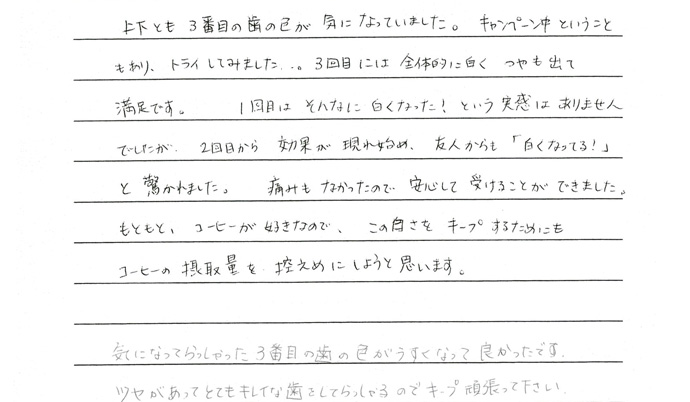 上下とも3番目の歯の色が気になっていました。キャンペーン中ということ
もあり、トライしてみました...。3回目には全体的に白くつやも出て
満足です。 1回目はそんなに白くなった！という実感はありません
でしたが、2回目から効果が現れ始め、友人からも「白くなってる！」
と驚かれました。 痛みもなかったので安心して受けることができました。
もともと、コーヒーが好きなので、この白さをキープするためにも
コーヒーの摂取量を控えめにしようと思います。
気になってらっしゃった3番目の歯の色がうすくなって良かったです.
ツヤがあってとてもキレイな歯をしてらっしゃるのでキープ頑張って下さい.